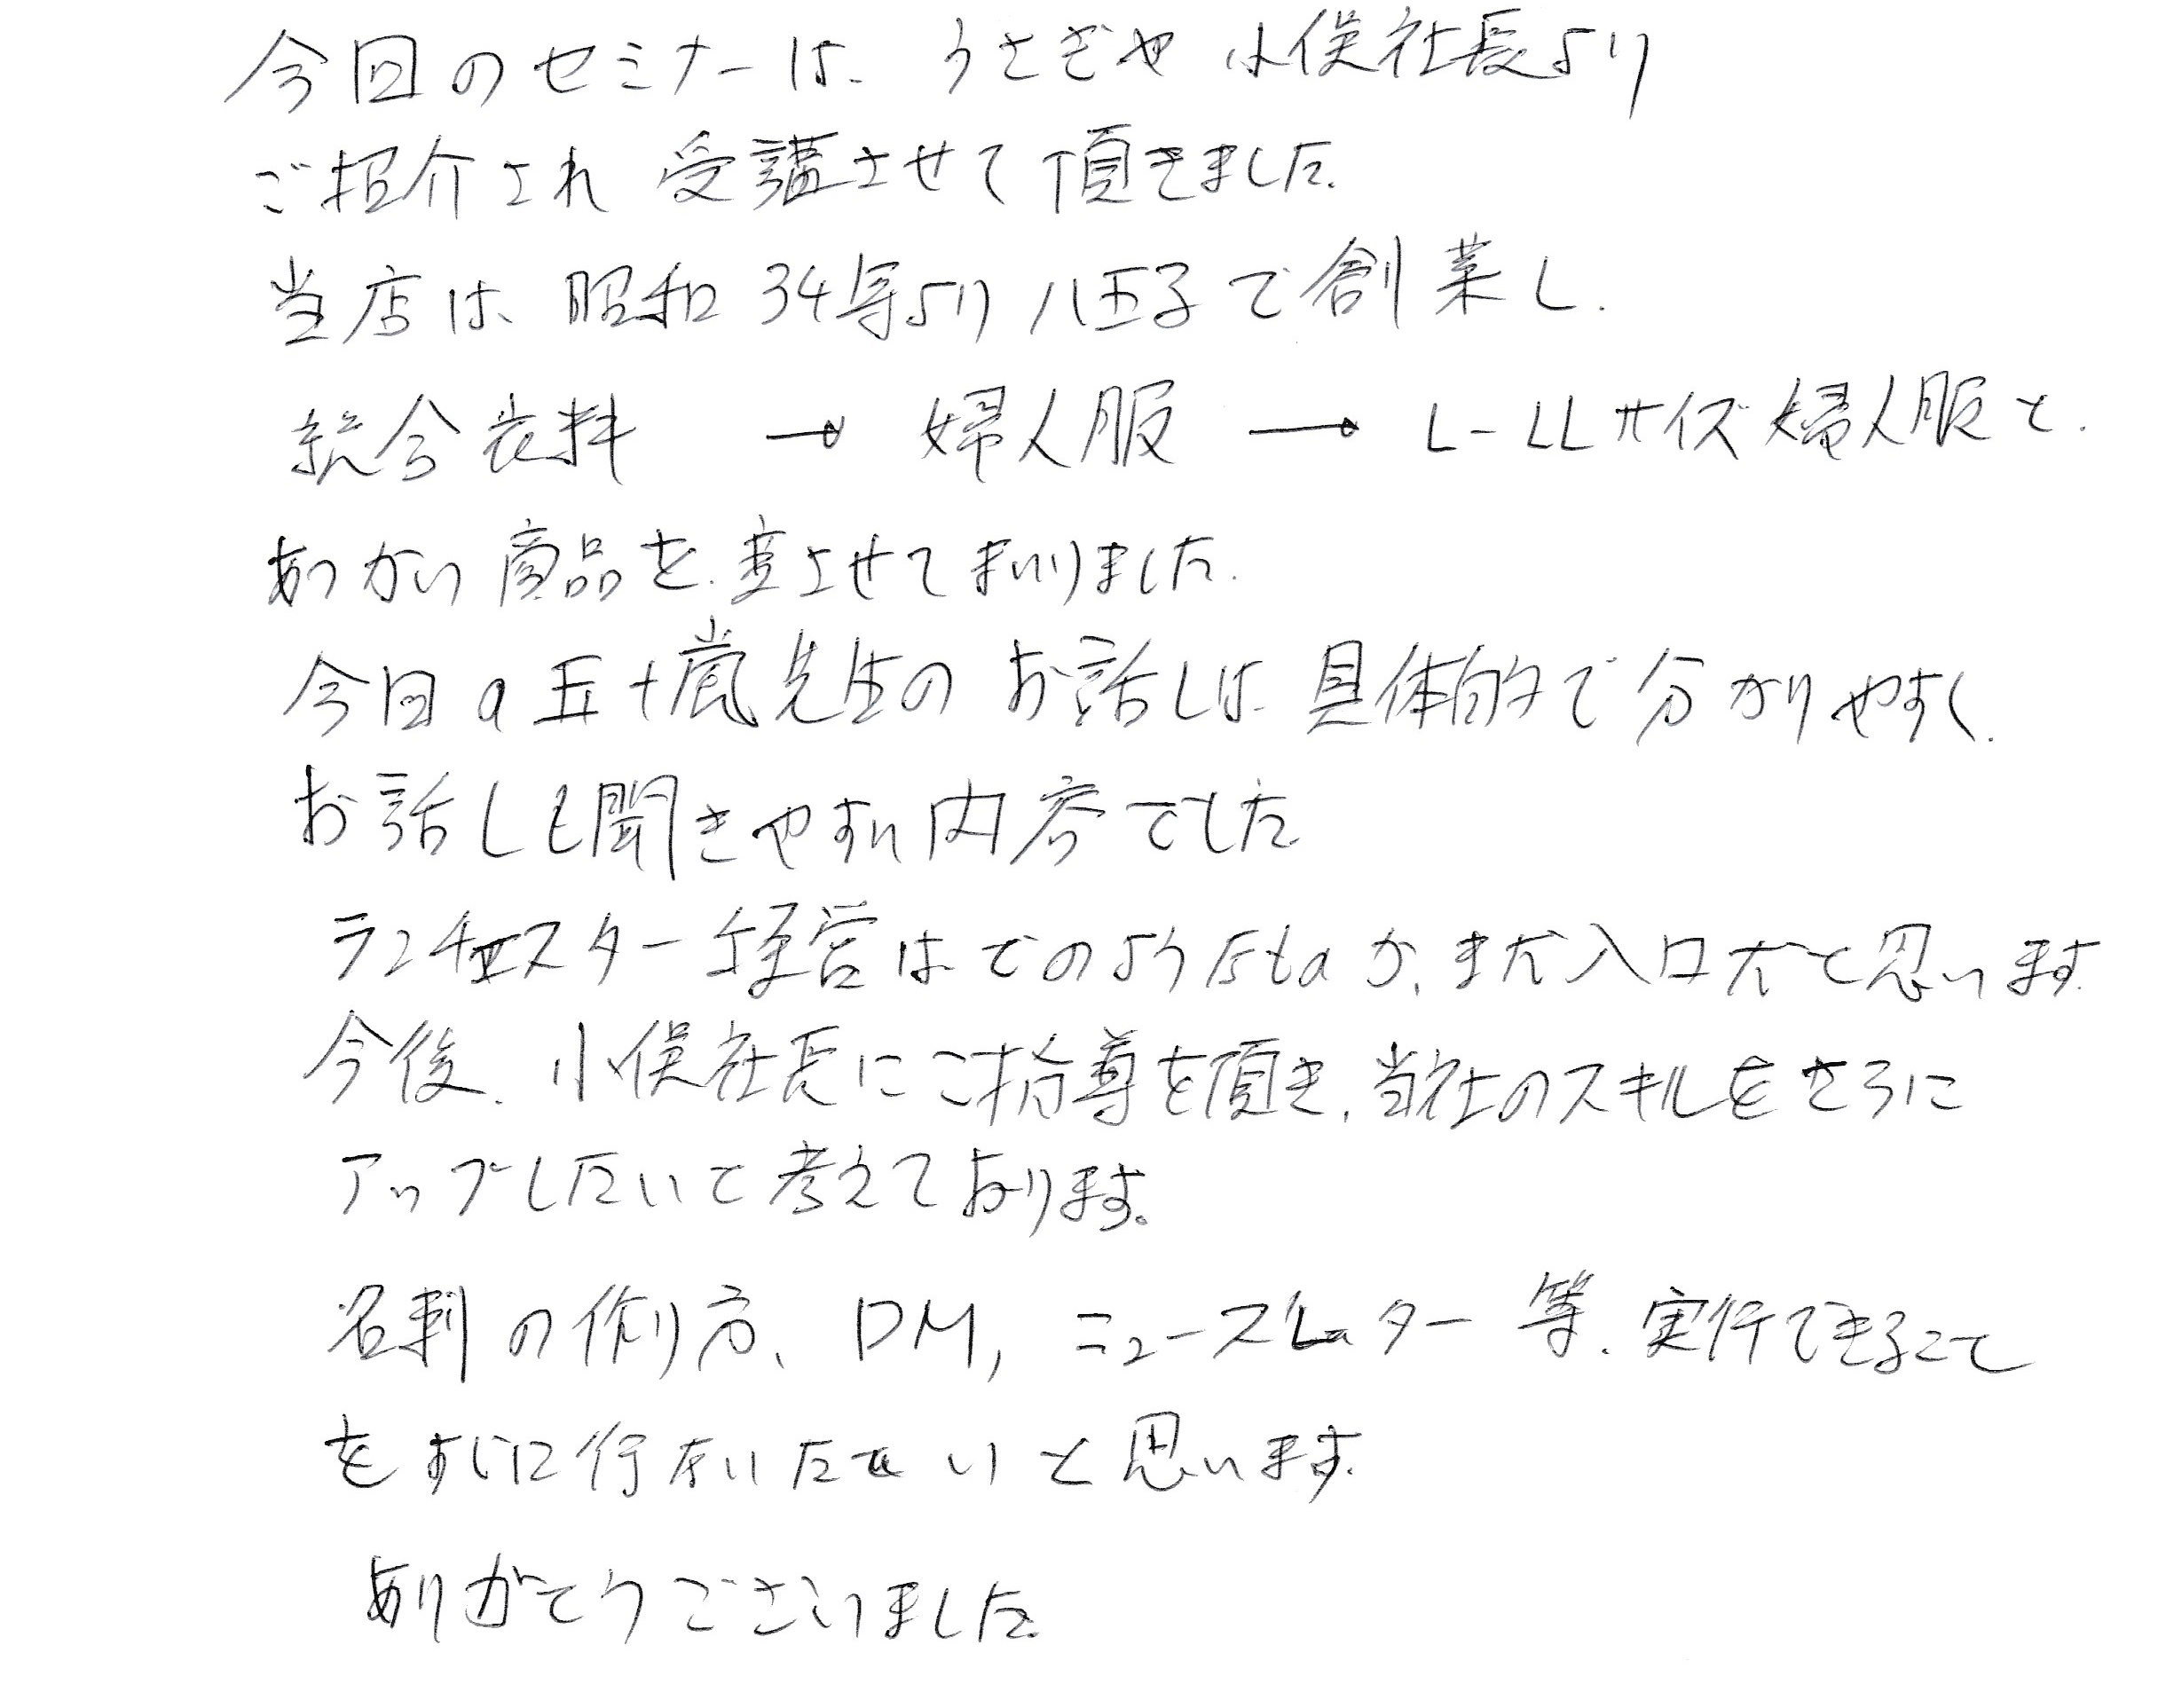 今回のセミナーは、うさぎや 小俣社長より
ご紹介され 受講させて頂きました。
当店は、昭和34年より八王子で創業し、
総合衣料 → 婦人服 → L-LLサイズ婦人服と、
あつかい商品を、変させてまいりました。
今回の五十嵐先生のお話しは、具体的で分かりやすく、
お話しも聞きやすい内容でした。
ランチェスター経営はどのようなものか、まだ入口だと思います。
今後、小俣社長にご指導を頂き、当社のスキルをさらに
アップしたいと考えております。
名刺の作り方、DM, ニュースレター等、実行できること
をすぐに行ないたいと思います。
ありがとうございました。